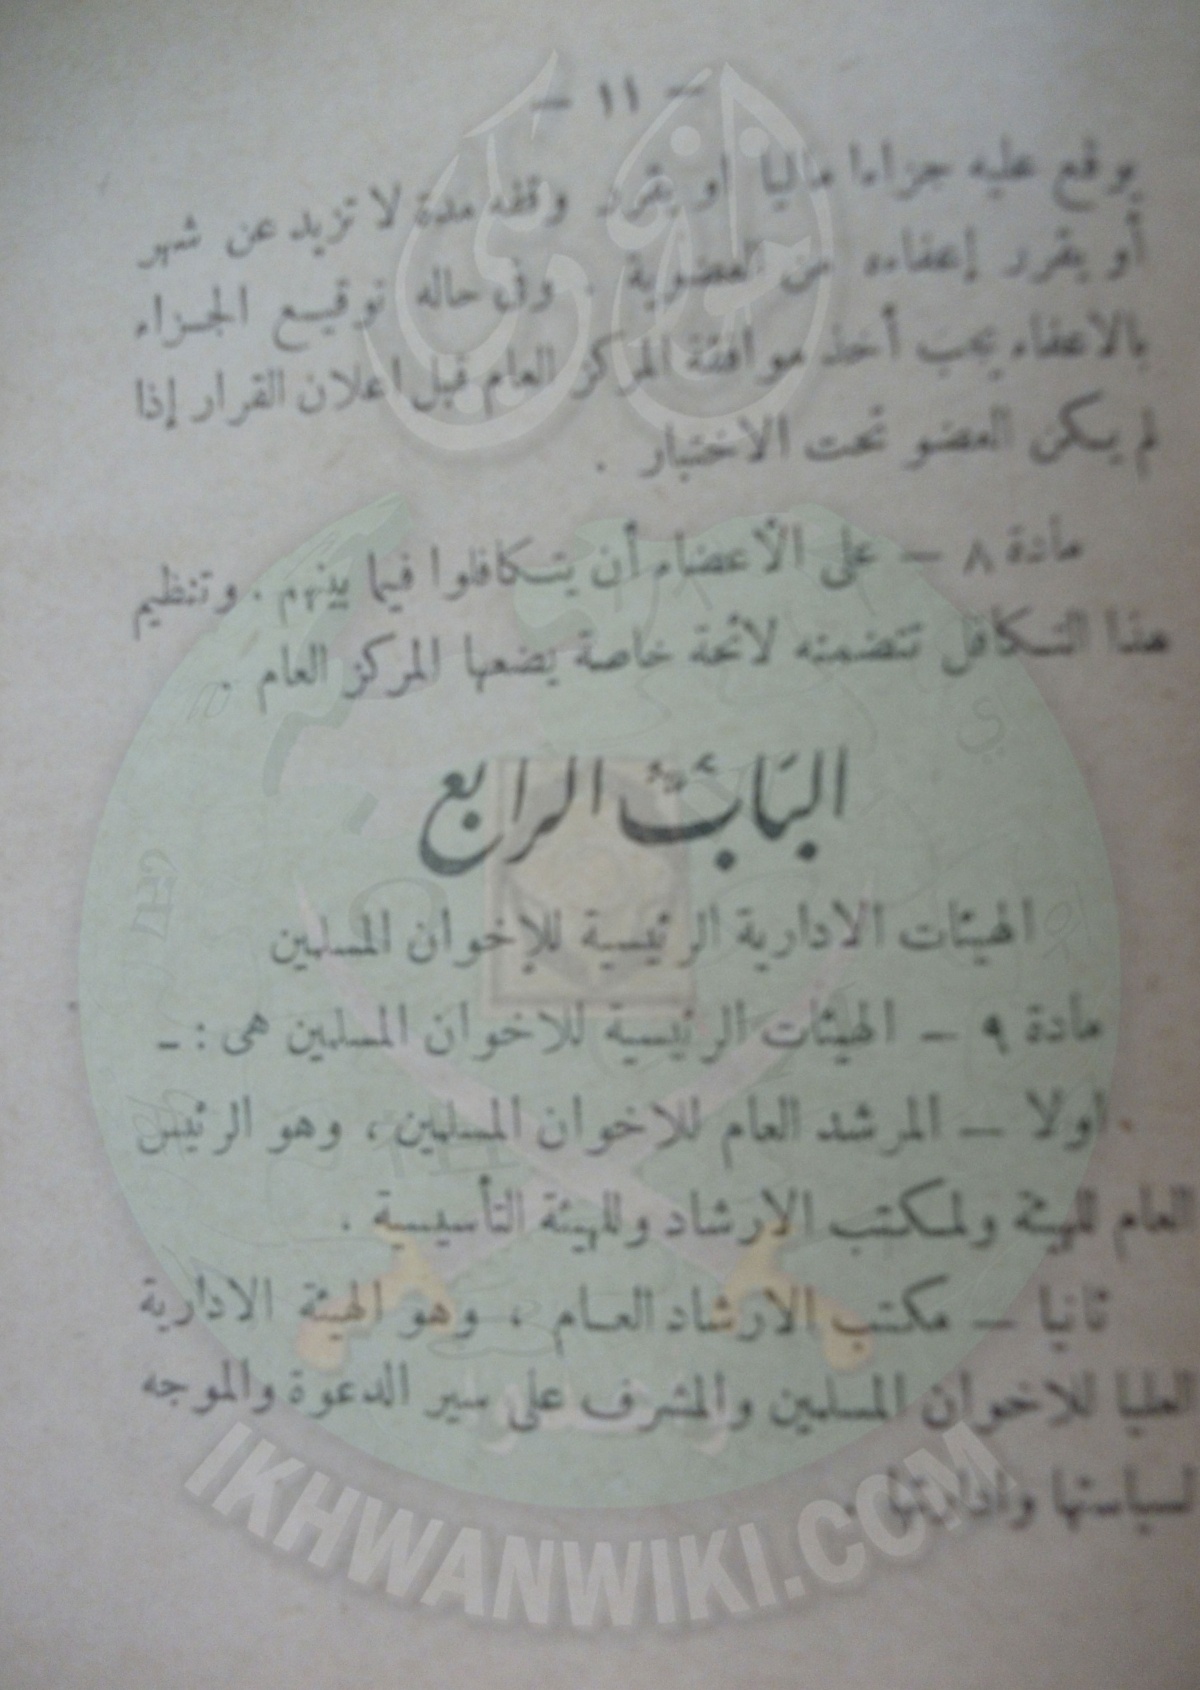 — ١١ —
يوقع عليه جزاءا ماليا او يقرر وقفه مدة لا تزيد عن شهر
أو يقرر إعفاءه من العضوية . وفى حاله توقيع الجزاء
بالاعفاء يجب أخذ موافقة المركز العام قبل اعلان القرار إذا
لم يكن العضو تحت الاختبار .
مادة ٨ — على الأعضاء أن يتكافلوا فيما بينهم . وتنظيم
هذا التكافل تتضمنه لائحة خاصة يضعها المركز العام .
الباب الرابع
الهيئات الادارية الرئيسية للإخوان المسلمين
مادة ٩ — الهيئات الرئيسية للاخوان المسلمين هى : ــ
اولا — المرشد العام للاخوان المسلمين ، وهو الرئيس
العام للهيئة ولمكتب الارشاد وللهيئة التأسيسية .
ثانيا — مكتب الارشاد العام ، وهو الهيئة الادارية
العليا للاخوان المسلمين والمشرف على سير الدعوة والموجه
لسياستها وادارتها .
IKHWANWIKI.COM